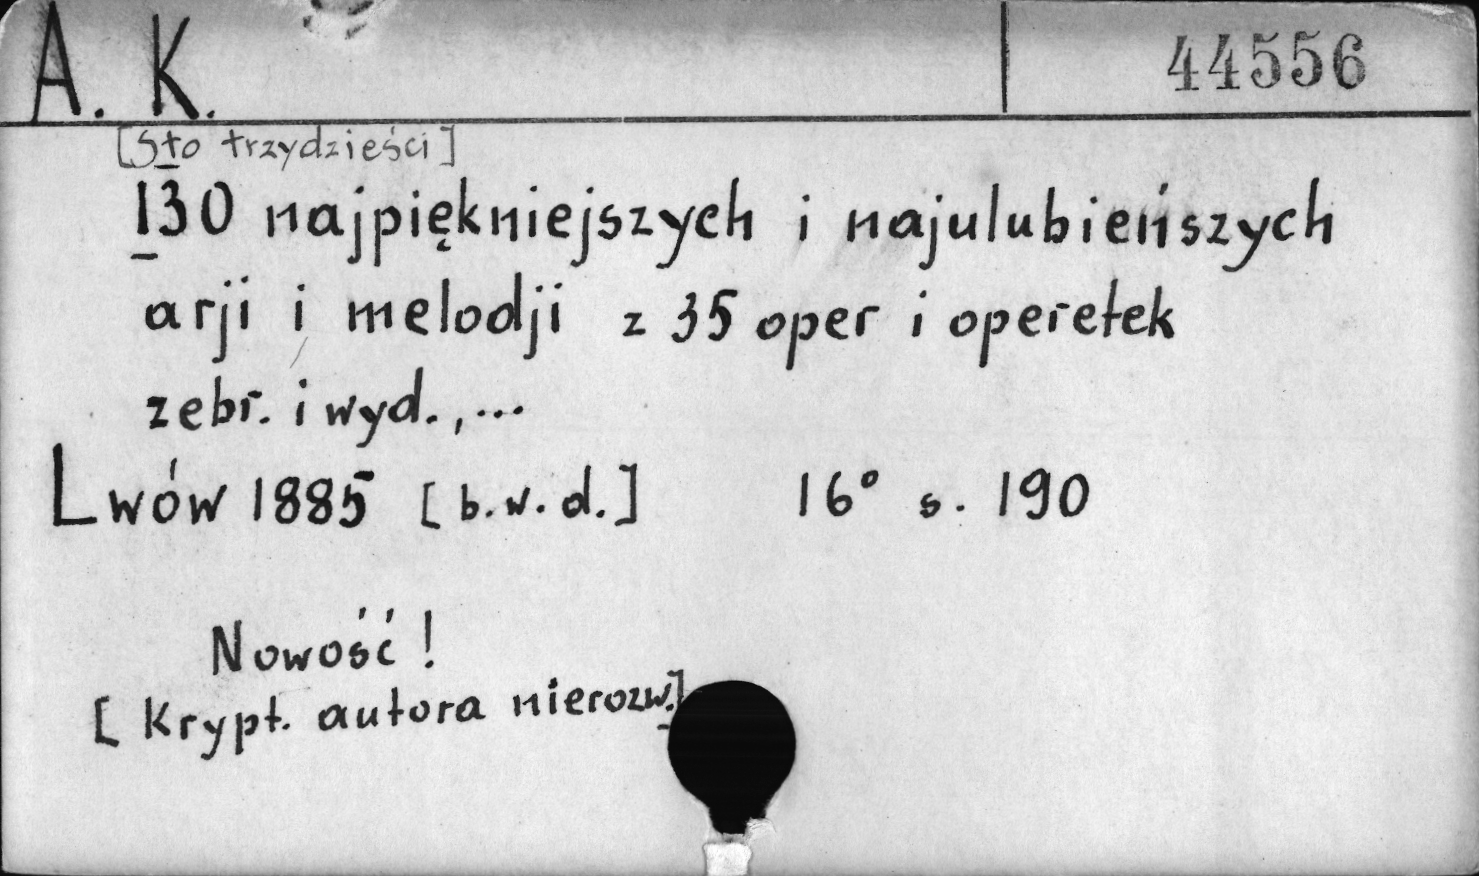 A. K.
44556
[Sto trzydzieści]
130 najpiękniejszych i najulubieńszych
arji i melodji z 35 oper i operetek
zebr. i wyd., ...
Lwów 1885 [b.w.d.] 16° s. 190
Nowość!
[Krypt. autora nierozw.]